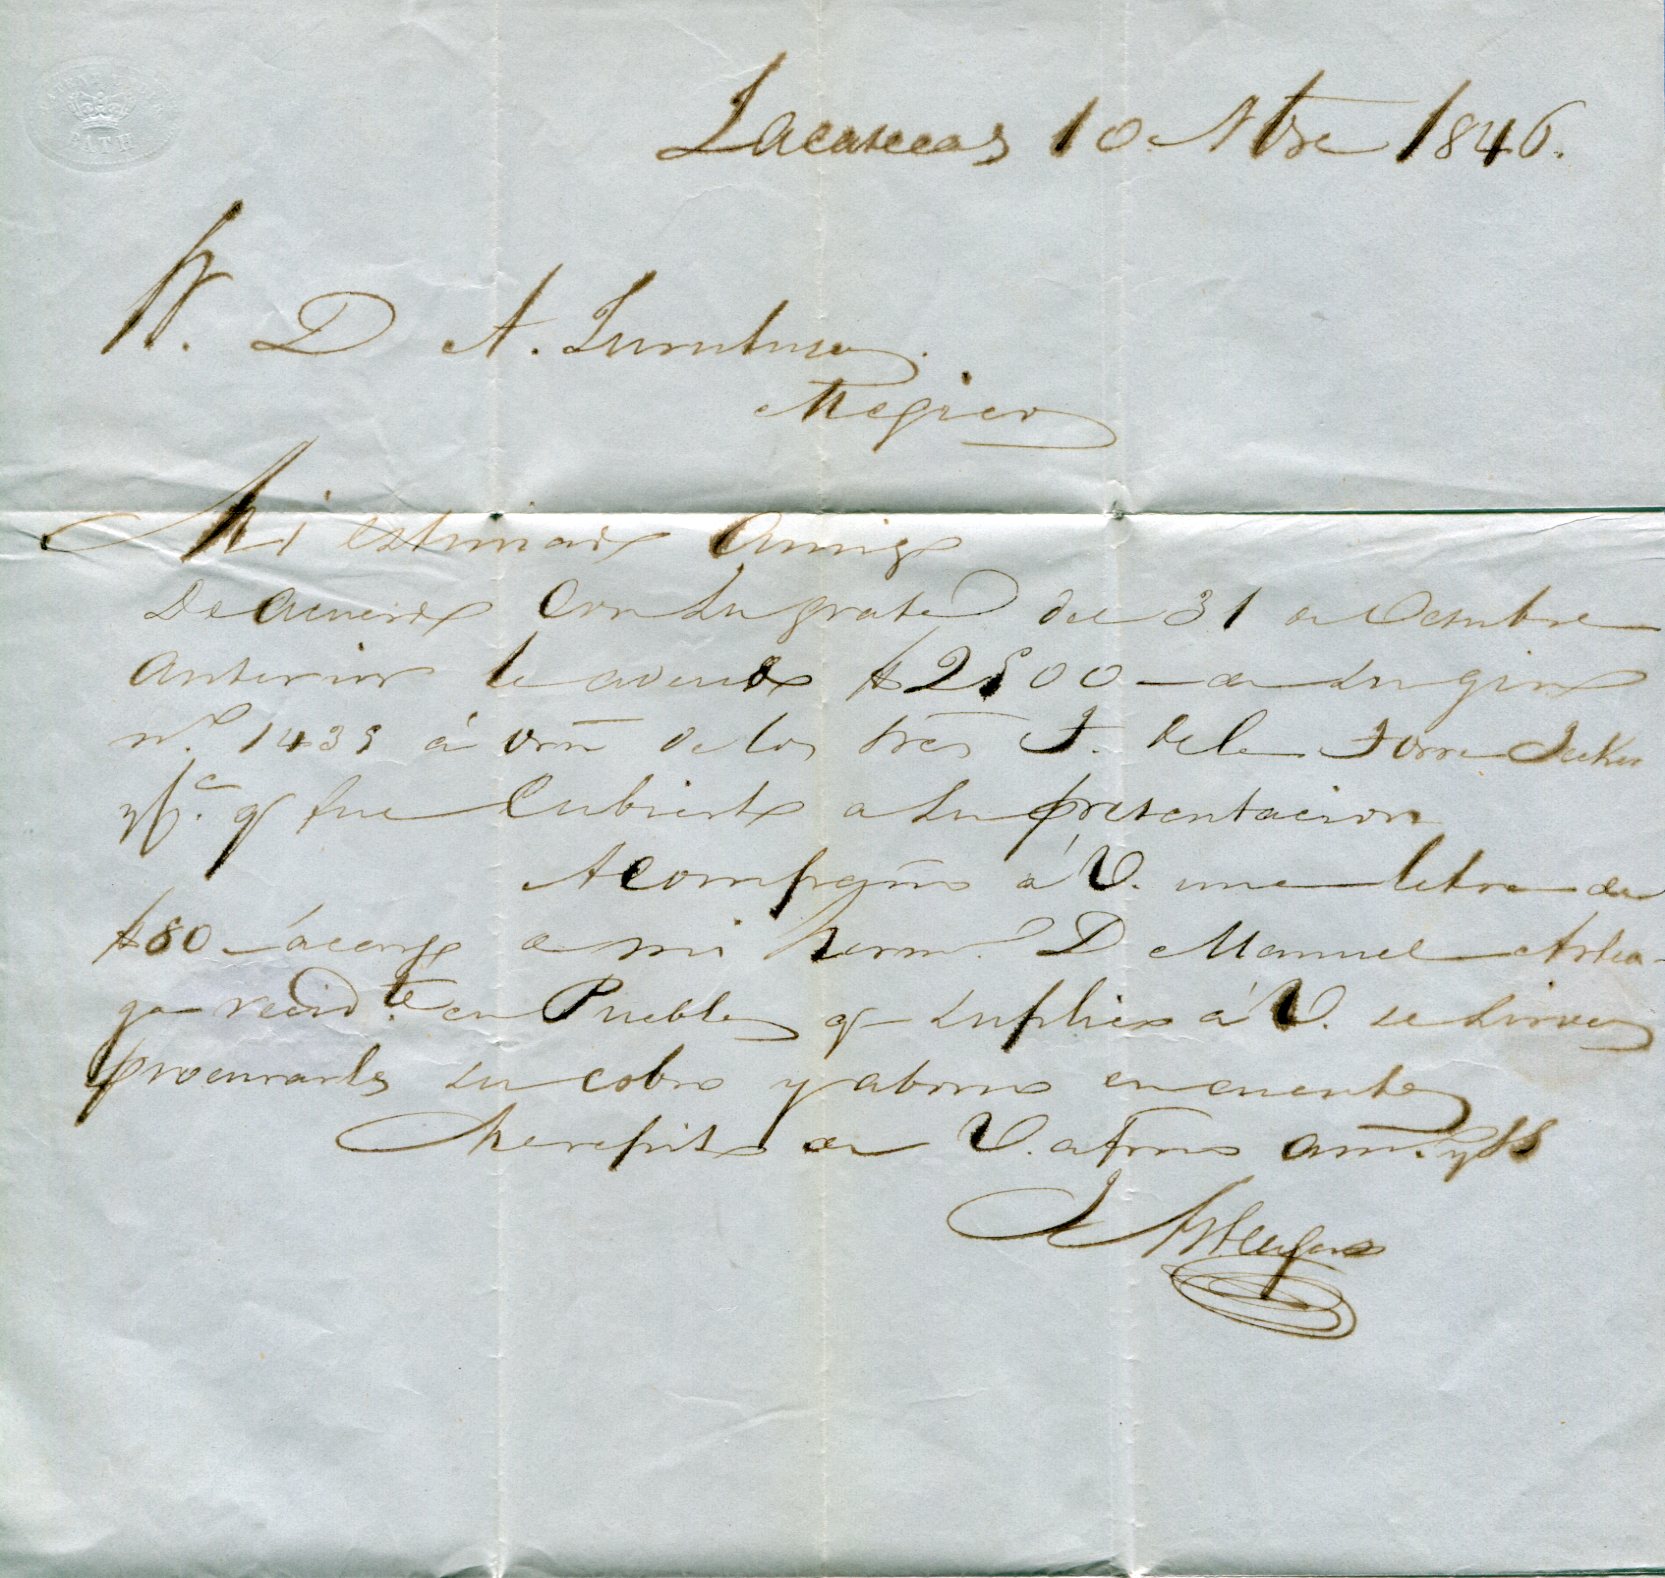 BATH
Zacatecas 10 Nbre 1846.
Sr. D A.
Megico
Mi estimado Amigo
De acuerdo con su grata del 31 de Octubre
anterior le adeudo $2500 – de su giro
nº. 1439 á orn̄ de los Sres J. de la Torre Jecker
y Cª. q fue cubierto a su presentacion
Acompaño á V. una letra de
$80 – á cargo de mi hermº. D Manuel Artea-
ga recidte. en Puebla q suplico á V. se sirva
procurarle su cobro y abono en cuenta
Me repito de V. afmo amº. y SS
J Arteaga